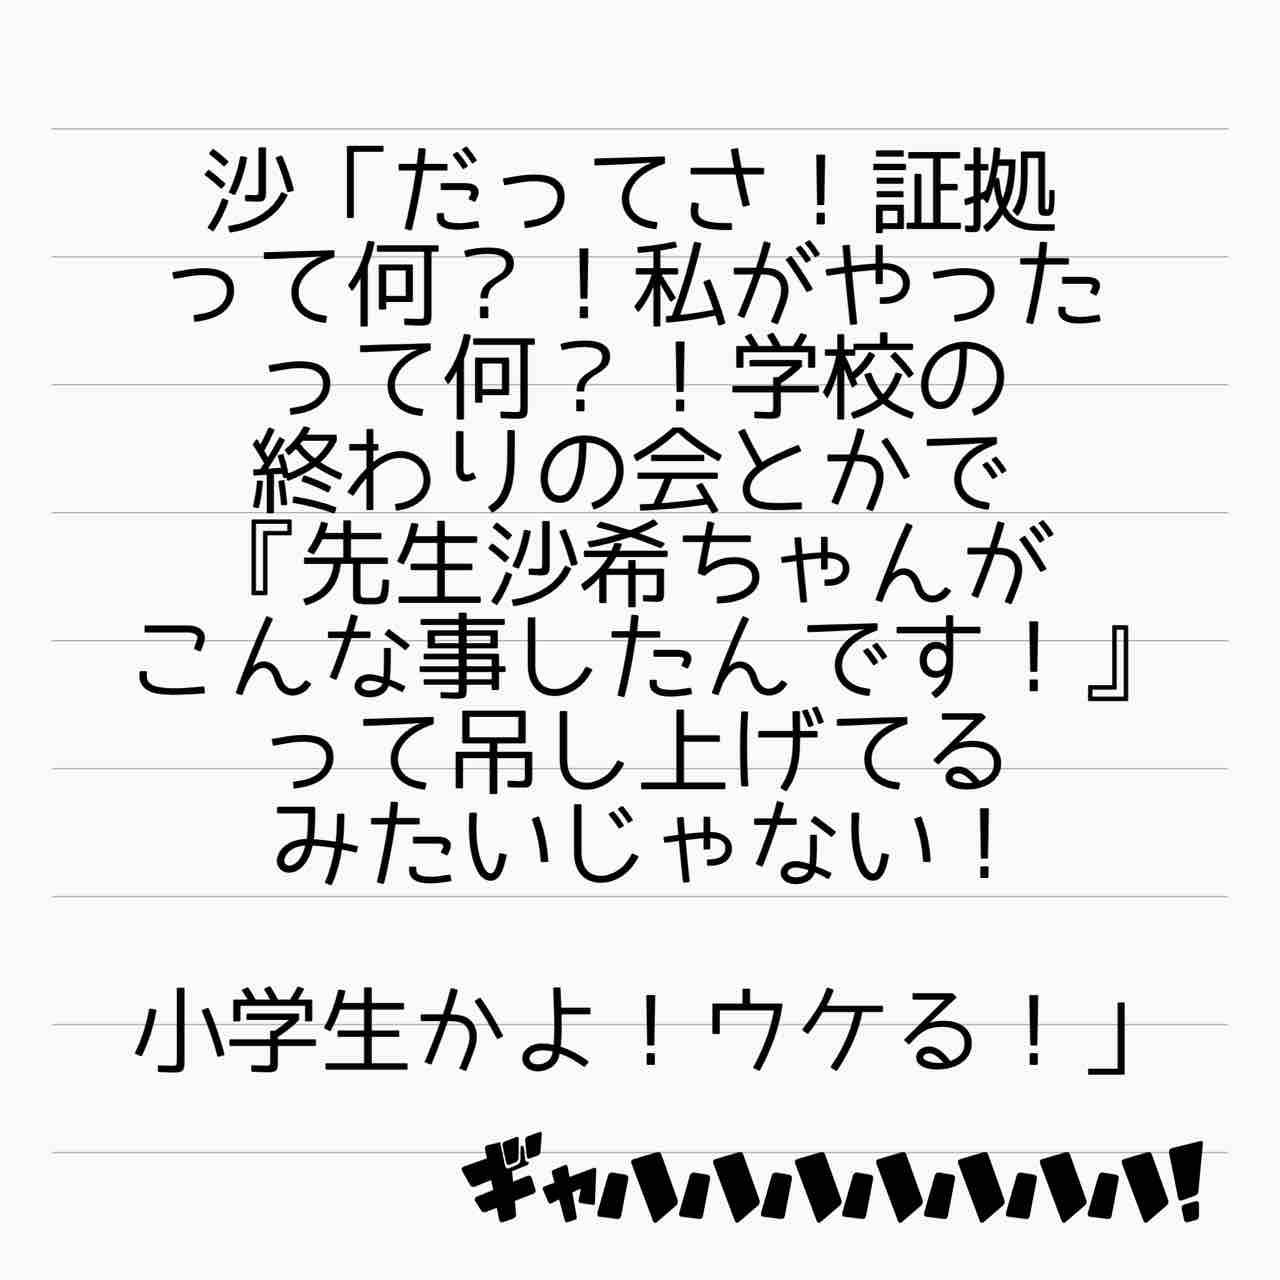 沙「だってさ！証拠
って何？！私がやった
って何？！学校の
終わりの会とかで
『先生沙希ちゃんが
こんな事したんです！』
って吊し上げてる
みたいじゃない！
小学生かよ！ウケる！」
ギャハハハハハハハ!